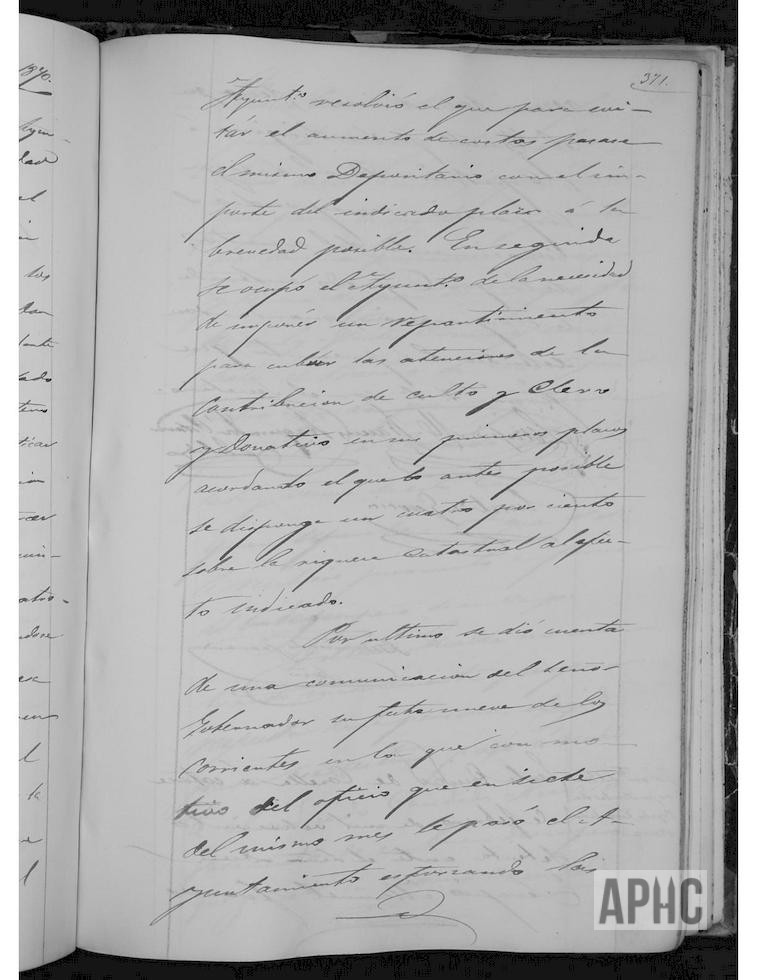 1870.
371.
Ayunt.º resolvió el que para evi-
tár el aumento de costas pasase
el mismo Depositario con el im-
porte del indicado plazo á la
brevedad posible. En seguida
se ocupó el Ayunt.º de la necesidad
de imponér un repartimiento
para cubrir las atenciones de la
Contribucion de culto y Clero
y Donativo en sus primeros plazos
acordando el que lo antes posible
se disponga un cuatro por ciento
sobre la riqueza catastral al efec-
to indicado.
Por ultimo se dió cuenta
de una comunicacion del Señor
Gobernador su fecha nueve de los
corrientes en la que con mo-
tivo del oficio que en siete
del mismo mes le pasó el A-
yuntamiento esforzando las
APHC